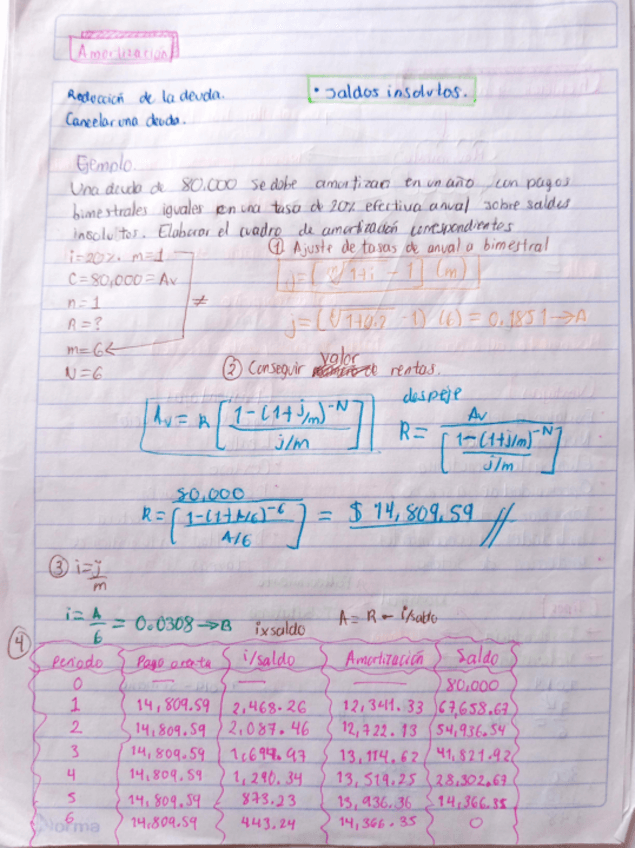 Amortización
Reducción de la deuda.
• Saldos insolutos.
Cancelar una deuda.
Ejemplo.
Una deuda de 80.000 se debe amortizar en un año con pagos
bimestrales iguales con una tasa de 20% efectiva anual sobre saldos
insolutos. Elaborar el cuadro de amortización correspondientes
i=20%. m=1
① Ajuste de tasas de anual a bimestral
C=80,000=Av
j=[ᵐ√1+i - 1] (m)
n=1
R=?
≠
j=(⁶√1+0.2 -1) (6) = 0.1851→A
m=6←
N=6
② Conseguir valor rentas.
despeje
Av = R [1-(1+j/m)^-N / j/m]
R = Av / [1-(1+j/m)^-N / j/m]
R = 80,000 / [1-(1+A/6)^-6 / A/6] = $ 14,809.59 //
③ i=j/m
i=A/6 = 0.0308→B
ixsaldo
A= R - i/saldo
④
Periodo Pago o renta i/saldo Amortización Saldo
0 — — — 80.000
1 14,809.59 2,468.26 12,341.33 67,658.67
2 14,809.59 2,087.46 12,722.13 54,936.54
3 14,809.59 1,694.97 13,114.62 41,821.92
4 14,809.59 1,290.34 13,519.25 28,302.67
5 14,809.59 873.23 13,936.36 14,366.35
6 14,809.59 443.24 14,366.35 0
Norma